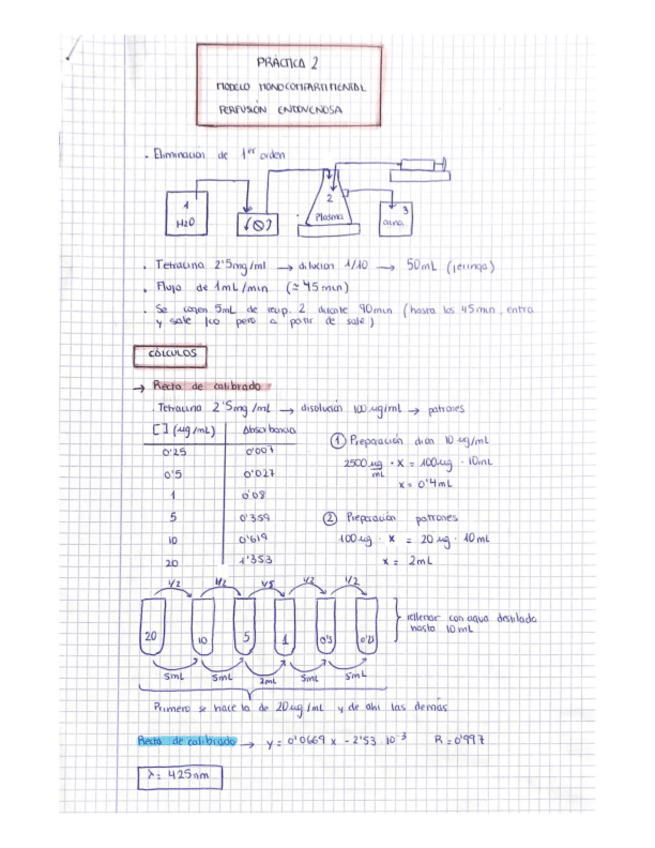 PRÁCTICA 2
MODELO MONOCOMPARTIMENTAL
PERFUSIÓN ENDOVENOSA
. Eliminación de 1er orden
1
H2O
2
Plasma
3
orina
. Tetracina 2'5mg/ml → dilución 1/10 → 50mL (jeringa)
. Flujo de 1mL/min (≃ 45min)
. Se cogen 5mL de recip. 2 durante 90min (hasta los 45min, entra
y sale pero a partir de sale)
CÁLCULOS
→ Recta de calibrado
. Tetracina 2'5mg/mL → disolución 100 ug/mL → patrones
[ ] (ug/mL) Absorbancia
0'25 0'007
0'5 0'027
1 0'08
5 0'359
10 0'619
20 1'353
① Preparación 10 ug/mL
2500 ug/mL · x = 100ug · 10mL
x = 0'4mL
② Preparación patrones
100ug · x = 20ug · 10mL
x = 2mL
1/2 1/2 1/5 1/2 1/2
20 10 5 1 0'5 0'25
5mL 5mL 2mL 5mL 5mL
rellenar con agua destilada
hasta 10mL
Primero se hace la de 20ug/mL y de ahí las demás
Recta de calibrado → y = 0'0669 x - 2'53 · 10-3 R = 0'997
λ = 425nm